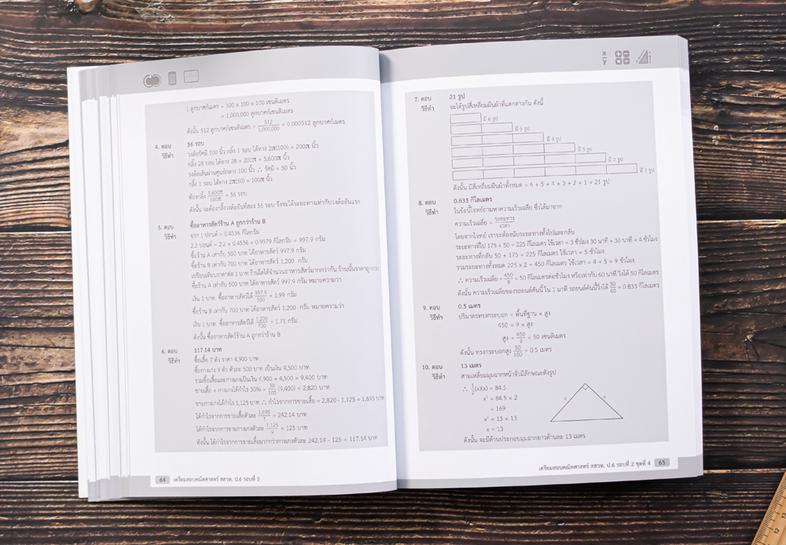 1 ลูกบาศก์เมตร = 100 x 100 x 100 เซนติเมตร
= 1,000,000 ลูกบาศก์เซนติเมตร
ดังนั้น 512 ลูกบาศก์เซนติเมตร = 512/1,000,000 = 0.000512 ลูกบาศก์เมตร
4. ตอบ 56 รอบ
วิธีทำ วงล้อรัศมี 100 นิ้ว กลิ้ง 1 รอบ ได้ทาง 2π(100) = 200π นิ้ว
กลิ้ง 28 รอบ ได้ทาง 28 x 200π = 5,600π นิ้ว
วงล้อเส้นผ่านศูนย์กลาง 100 นิ้ว ∴ รัศมี = 50 นิ้ว
กลิ้ง 1 รอบ ได้ทาง 2π(50) = 100π นิ้ว
ต้องกลิ้ง 5,600π/100π = 56 รอบ
5. ตอบ ซื้ออาหารสัตว์ร้าน A ถูกกว่าร้าน B
วิธีทำ จาก 1 ปอนด์ = 0.4536 กิโลกรัม
2.2 ปอนด์ = 2.2 x 0.4536 = 0.9979 กิโลกรัม = 997.9 กรัม
ซื้อร้าน A เท่ากับ 500 บาท ได้อาหารสัตว์ 997.9 กรัม
ซื้อร้าน B เท่ากับ 700 บาท ได้อาหารสัตว์ 1,200 กรัม
ซื้อร้าน A เท่ากับ 500 บาท ได้อาหารสัตว์ 997.9 กรัม หมายความว่า
เงิน 1 บาท ซื้ออาหารสัตว์ได้ 997.9/500 = 1.99 กรัม
ซื้อร้าน B เท่ากับ 700 บาท ได้อาหารสัตว์ 1,200 กรัม หมายความว่า
เงิน 1 บาท ซื้ออาหารสัตว์ได้ 1,200/700 = 1.71 กรัม
ดังนั้น ซื้ออาหารสัตว์ร้าน A ถูกกว่าร้าน B
6. ตอบ 117.14 บาท
วิธีทำ ซื้อเสื้อ 7 ตัว ราคา 4,900 บาท
ซื้อกางเกง 9 ตัว ตัวละ 500 บาท เป็นเงิน 4,500 บาท
รวมซื้อเสื้อและกางเกงเป็นเงิน 4,900 + 4,500 = 9,400 บาท
ขายกางเกงได้กำไร 1,125 บาท ∴ กำไรจากการขายเสื้อ = 2,820 - 1,125 = 1,695 บาท
ได้กำไรจากการขายเสื้อตัวละ 1,695/7 = 242.14 บาท
ได้กำไรจากการขายกางเกงตัวละ 1,125/9 = 125 บาท
ดังนั้น ได้กำไรจากการขายเสื้อมากกว่ากางเกงตัวละ 242.14 - 125 = 117.14 บาท
64 เตรียมสอบคณิตศาสตร์ สสวท. ป.6 รอบที่ 2
7. ตอบ 21 รูป
วิธีทำ จะได้รูปสี่เหลี่ยมผืนผ้าที่แตกต่างกัน ดังนี้
มี 6 รูป
มี 5 รูป
มี 4 รูป
มี 3 รูป
มี 2 รูป
มี 1 รูป
ดังนั้น มีสี่เหลี่ยมผืนผ้าทั้งหมด = 6 + 5 + 4 + 3 + 2 + 1 = 21 รูป
8. ตอบ 0.833 กิโลเมตร
วิธีทำ ในข้อนี้โจทย์ถามหาความเร็วเฉลี่ย ซึ่งได้มาจาก
ความเร็วเฉลี่ย = ระยะทาง/เวลา
โดยจากโจทย์ เราจะต้องนับระยะทางทั้งไปและกลับ
ระยะทางที่ไป 175 + 50 = 225 กิโลเมตร ใช้เวลา = 3 ชั่วโมง 30 นาที + 30 นาที = 4 ชั่วโมง
ระยะทางที่กลับ 50 + 175 = 225 กิโลเมตร ใช้เวลา = 5 ชั่วโมง
รวมระยะทางทั้งหมด 225 x 2 = 450 กิโลเมตร ใช้เวลา = 4 + 5 = 9 ชั่วโมง
∴ ความเร็วเฉลี่ย = 450/9 = 50 กิโลเมตรต่อชั่วโมง หรือเท่ากับ 60 นาที วิ่งได้ 50 กิโลเมตร
ดังนั้น ความเร็วเฉลี่ยของรถยนต์คันนี้ใน 1 นาที รถยนต์คันนี้วิ่งได้ 50/60 = 0.833 กิโลเมตร
9. ตอบ 0.5 เมตร
วิธีทำ ปริมาตรทรงกระบอก = พื้นที่ฐาน x สูง
450 = 9 x สูง
สูง = 450/9 = 50 เซนติเมตร
ดังนั้น ทรงกระบอกสูง 50/100 = 0.5 เมตร
10. ตอบ 13 เมตร
วิธีทำ สามเหลี่ยมมุมฉากหน้าจั่วมีลักษณะดังรูป
∴ 1/2(x)(x) = 84.5
x² = 84.5 x 2
= 169
x² = 13 x 13
x = 13
x x
ดังนั้น จะมีด้านประกอบมุมฉากยาวด้านละ 13 เมตร
เตรียมสอบคณิตศาสตร์ สสวท. ป.6 รอบที่ 2 ชุดที่ 4 65